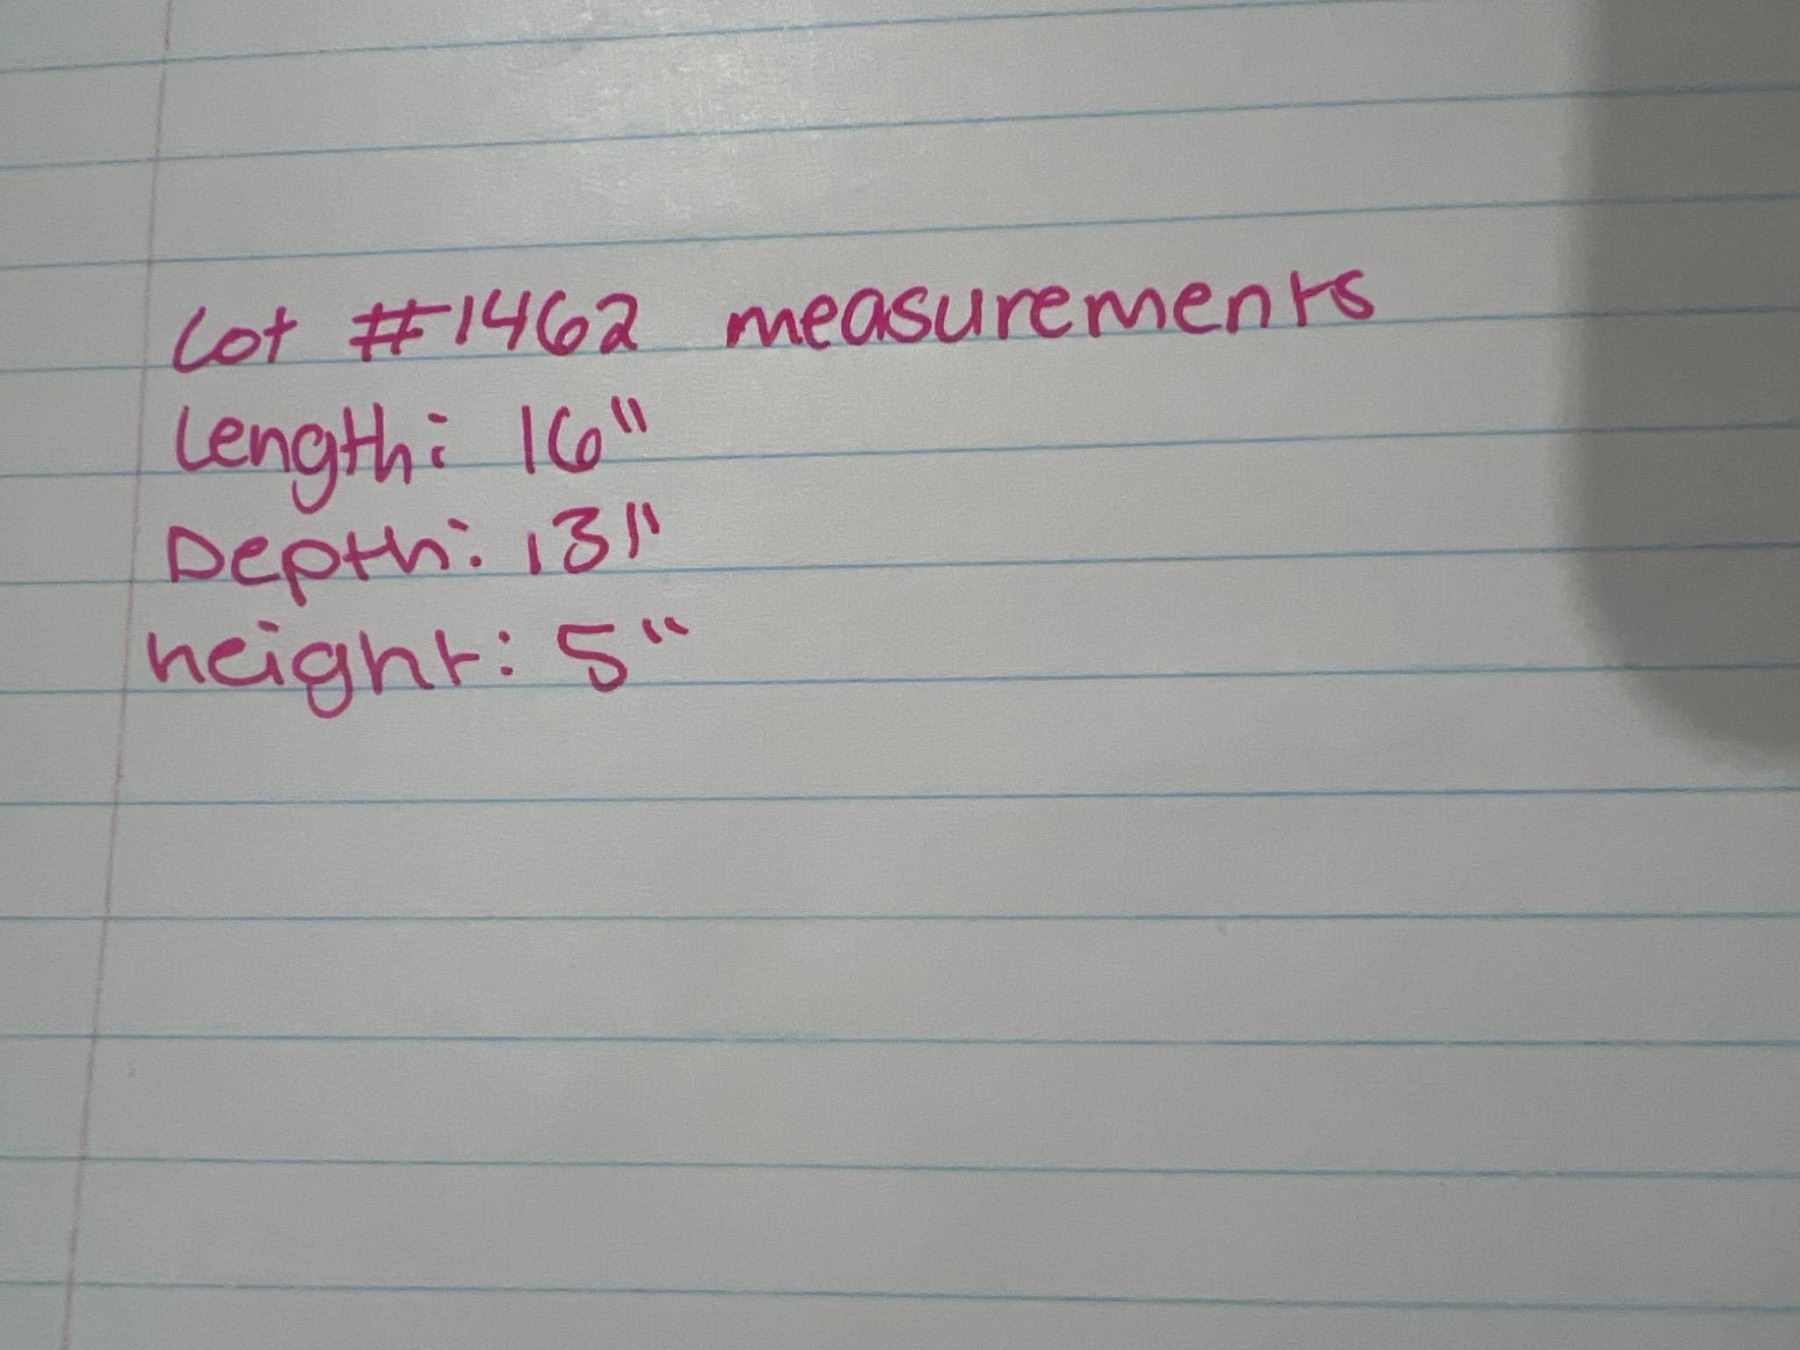 Lot #1462 measurements
Length: 16"
Depth: 13"
height: 5"